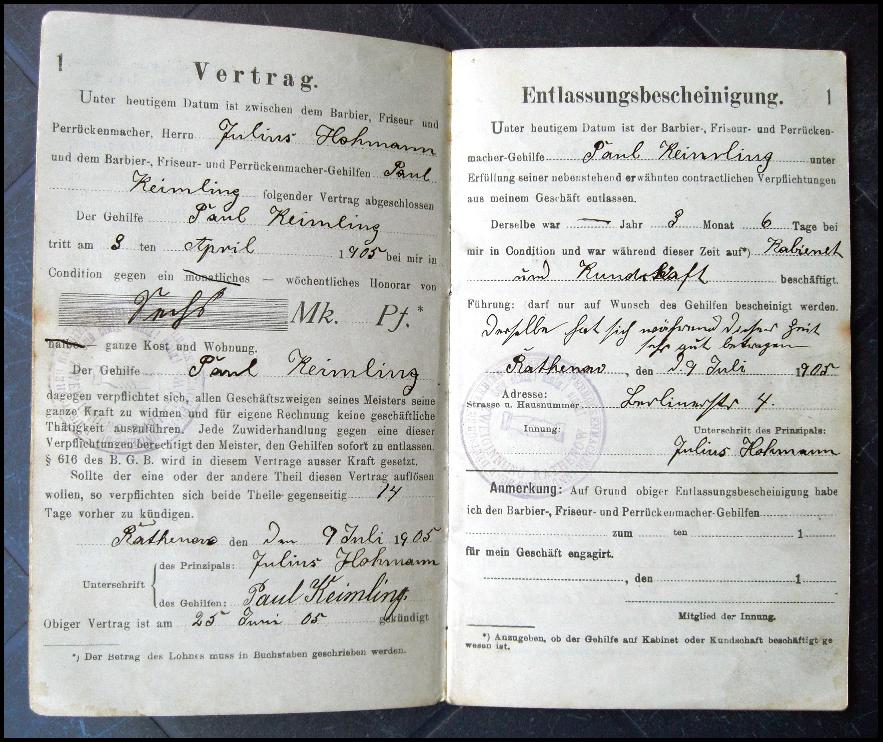 1
Vertrag.
Unter heutigem Datum ist zwischen dem Barbier, Friseur und
Perrückenmacher, Herrn Julius Hohmann
und dem Barbier-, Friseur- und Perrückenmacher-Gehilfen Paul
Keimling folgender Vertrag abgeschlossen
Der Gehilfe Paul Keimling
tritt am 3 ten April 1905 bei mir in
Condition gegen ein monatliches — wöchentliches Honorar von
Sechs Mk. Pf.*
halbe — ganze Kost und Wohnung.
Der Gehilfe Paul Keimling
dagegen verpflichtet sich, allen Geschäftszweigen seines Meisters seine
ganze Kraft zu widmen und für eigene Rechnung keine geschäftliche
Thätigkeit auszuführen. Jede Zuwiderhandlung gegen eine dieser
Verpflichtungen berechtigt den Meister, den Gehilfen sofort zu entlassen.
§ 616 des B. G. B. wird in diesem Vertrage ausser Kraft gesetzt.
Sollte der eine oder der andere Theil diesen Vertrag auflösen
wollen, so verpflichten sich beide Theile gegenseitig 14
Tage vorher zu kündigen.
Rathenow den 9 Juli 1905
Unterschrift { des Prinzipals: Julius Hohmann
des Gehilfen: Paul Keimling.
Obiger Vertrag ist am 25 Juni 05 gekündigt
*) Der Betrag des Lohnes muss in Buchstaben geschrieben werden.
Entlassungsbescheinigung. 1
Unter heutigem Datum ist der Barbier-, Friseur- und Perrücken-
macher-Gehilfe Paul Keimling unter
Erfüllung seiner nebenstehend erwähnten contractlichen Verpflichtungen
aus meinem Geschäft entlassen.
Derselbe war — Jahr 3 Monat 6 Tage bei
mir in Condition und war während dieser Zeit auf*) Kabienet
und Kundschaft beschäftigt.
Führung: darf nur auf Wunsch des Gehilfen bescheinigt werden.
Derselbe hat sich während dieser Zeit
sehr gut betragen
Rathenow, den 9 Juli 1905
Adresse:
Strasse u. Hausnummer Berlinerstr 4.
Innung: Unterschrift des Prinzipals:
Julius Hohmann
Anmerkung: Auf Grund obiger Entlassungsbescheinigung habe
ich den Barbier-, Friseur- und Perrückenmacher-Gehilfen
zum ten 1
für mein Geschäft engagirt.
, den 1
Mitglied der Innung.
*) Anzugeben, ob der Gehilfe auf Kabinet oder Kundschaft beschäftigt ge
wesen ist.